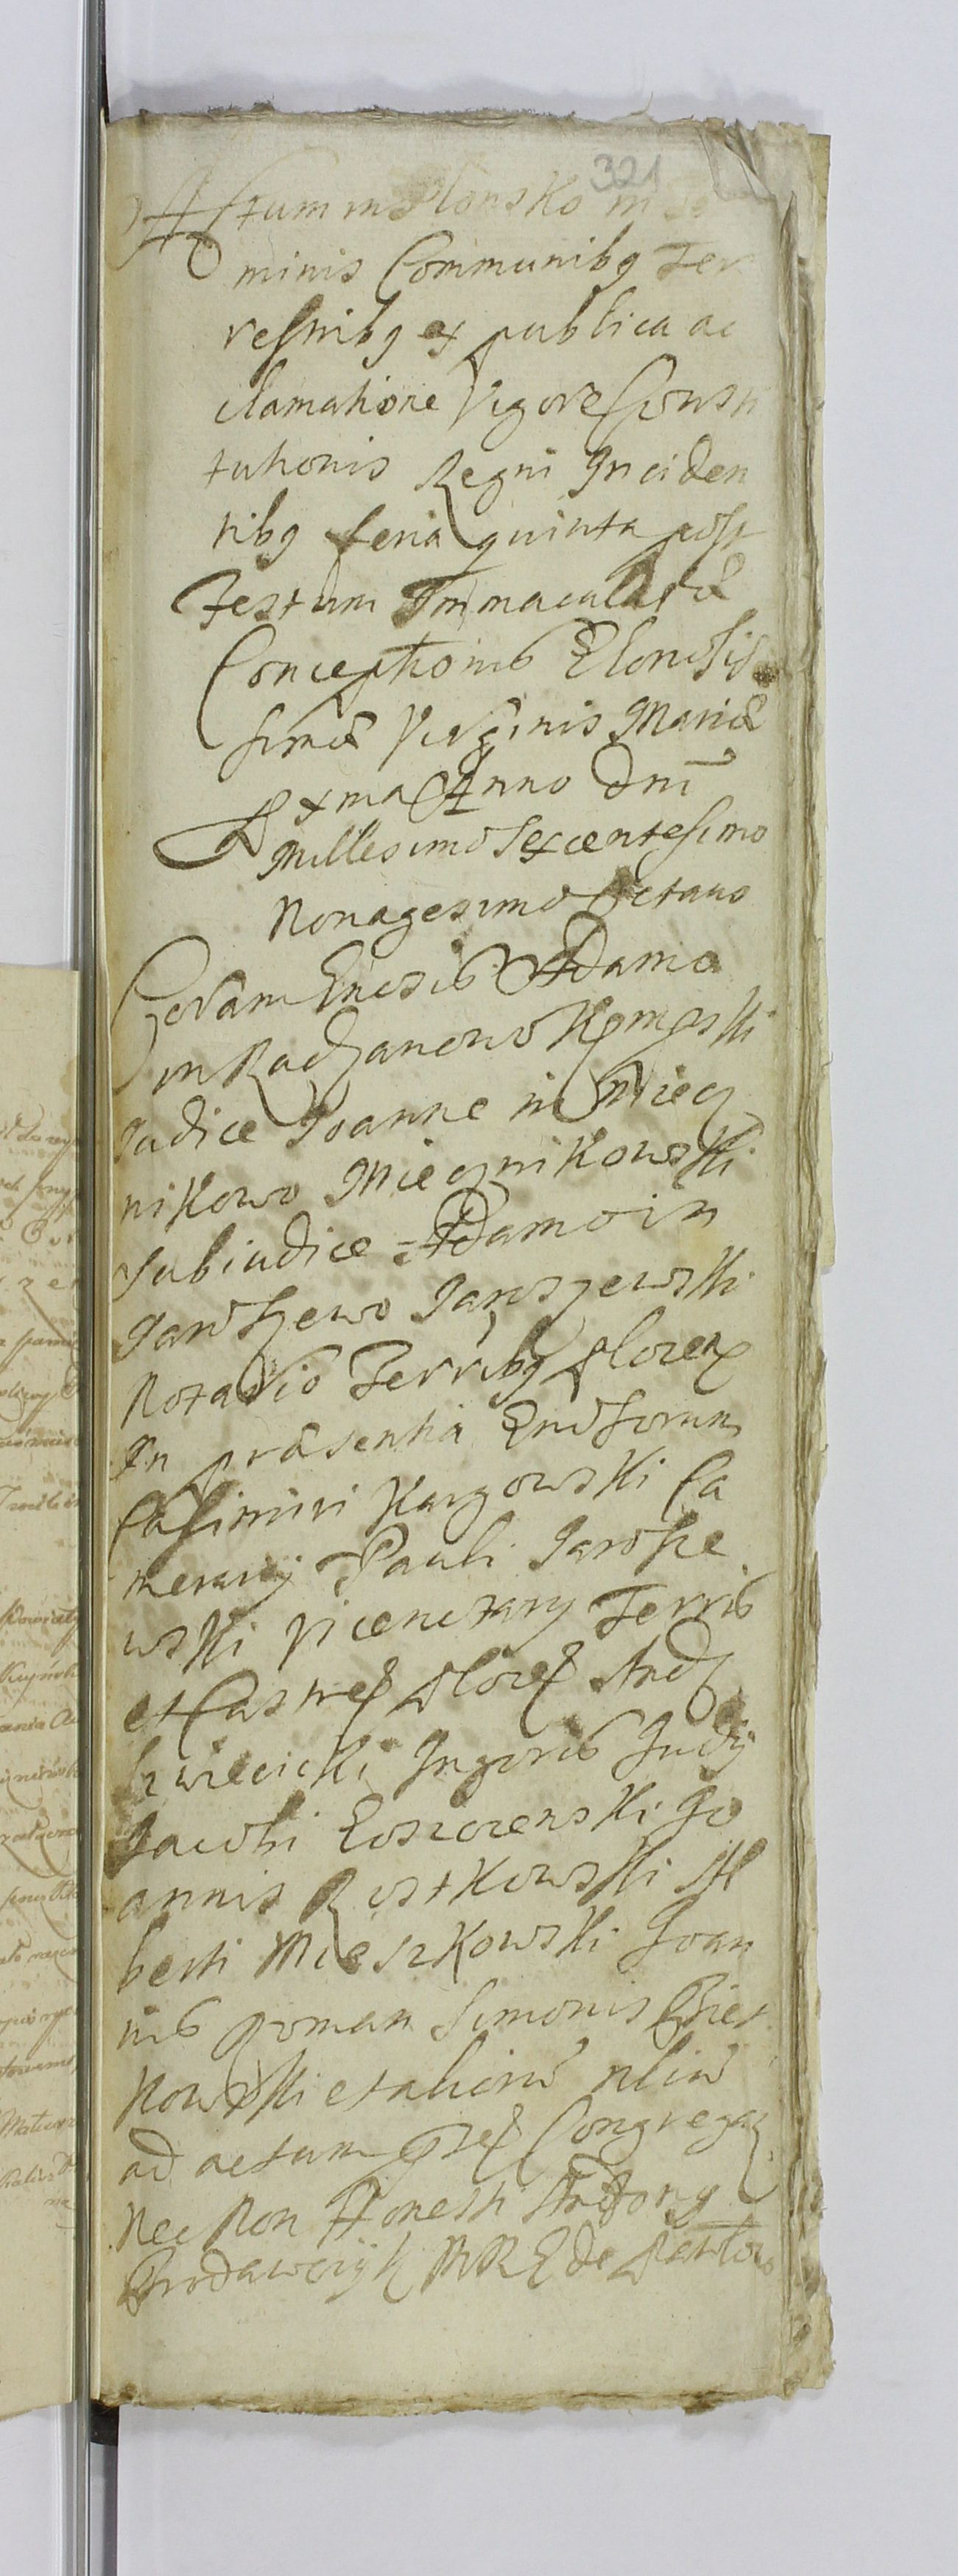 321
Actum in Plonsko in Ter
minis Communibq Ter
restribq ex publica ac
clamatione Vigore Consti
tutionis Regni Inciden
tibq feria quinta post
Festum Immaculatæ
Conceptionis Glorosis
simæ Virginis Mariæ
pxma Anno Dni
Millesimo Sexcentesimo
Nonagesimo Octauo
Coram Gnosis Adamo
in Radzanowo Kęmpski
Judice Joanne in Miecz
nikowo Miecznikowski
Subiudice Adamo in
Jaroszewo Jaroszewski
Notario Terribq Plocen
In præsentia Gnosorum
Casimiri Kargowski Ca
merarij Pauli Jarosze
wski Vicenotarij Terris
et Castren Plocen And
Kwiecicki Ingoris Judij
Jacobi Kosiorenski Jo
annis Rostkowski Al
berti Mieszkowski Joan
nis Roman Simonis
kowski et aliorū plurū
ad actum psen Congregaz
Nec Non Honesti Antonij
MRG de